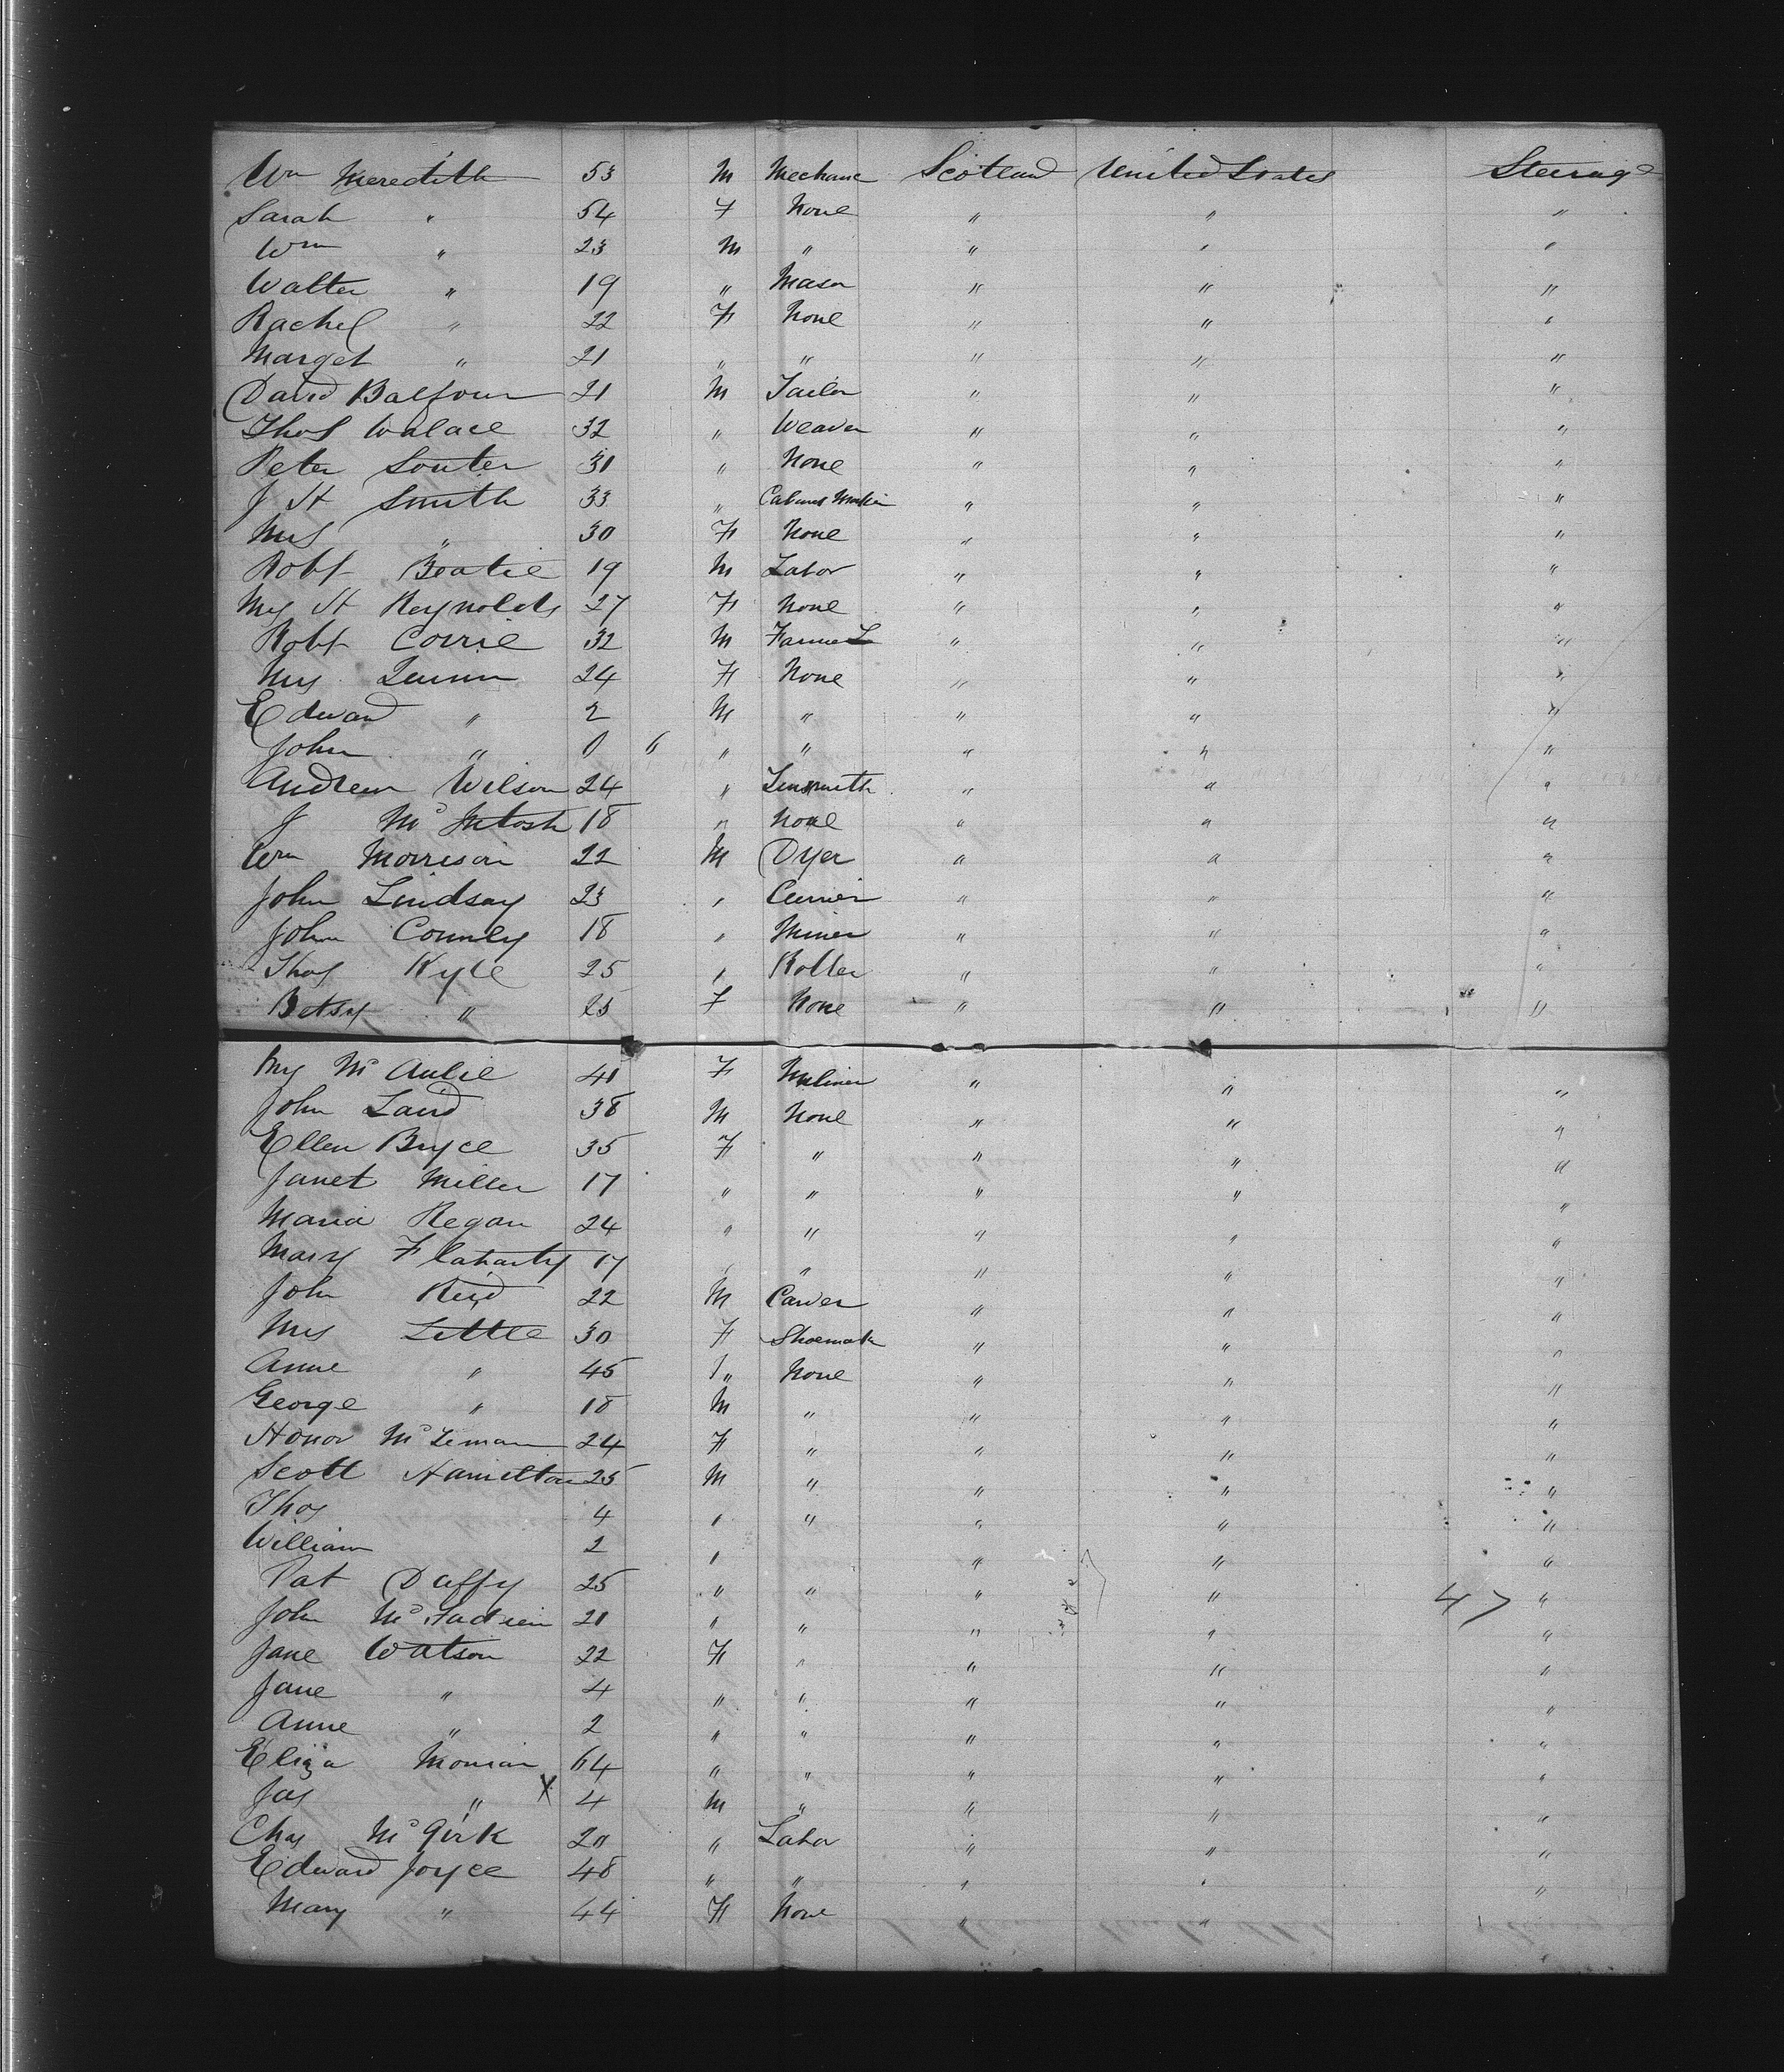 Wm Meredith 53 M Mechanic Scotland United States Steerage
Sarah " 54 F None " " "
Wm " 23 M " " " "
Walter " 19 " Mason " " "
Rachel " 22 F None " " "
Marget " 21 " " " " "
David Balfour 21 M Tailor " " "
Thos Walace 32 " Weaver " " "
Peter Souter 30 " None " " "
J H Smith 33 " Cabinet Maker " " "
Mrs " 30 F None " " "
Robt Beatie 19 M Labor " " "
Mrs H Reynolds 27 F None " " "
Robt Corrie 32 M Farmer " " "
Mrs 24 F None " " "
Edward " 2 M " " " "
John " 0 6 " " " " "
Andrew Wilson 24 " Tinsmith " " "
J McIntosh 18 " None " " "
Wm Morrison 22 M Dyer " " "
John Lindsay 23 " Currier " " "
John Connely 18 " Miner " " "
Thos Kyle 25 " Roller " " "
Betsy " 25 F None " " "
Mrs McAulie 40 F Miliner " " "
John Laird 38 M None " " "
Ellen Bryce 35 F " " " "
Janet Miller 17 " " " " "
Maria Regan 24 " " " " "
Mary Flaharty 17 " " " " "
John Reid 22 M Carver " " "
Mrs Little 30 F Shoemak " " "
Anne " 45 " None " " "
George " 18 M " " " "
Honor McLeman 24 F " " " "
Scott Hamilton 25 M " " " "
Thos 4 " " " " "
William 2 " " " "
Pat Daffy 25 " " " " 47 "
John Mc 20 " " " " "
Jane Watson 22 F " " " "
Jane " 4 " " " " "
Anne " 2 " " " " "
Eliza 64 " " " " "
Jas " X 4 M " " " "
Chas McGirk 20 " Labor " " "
Edward Joyce 48 " " " " "
Mary " 44 F None " " "